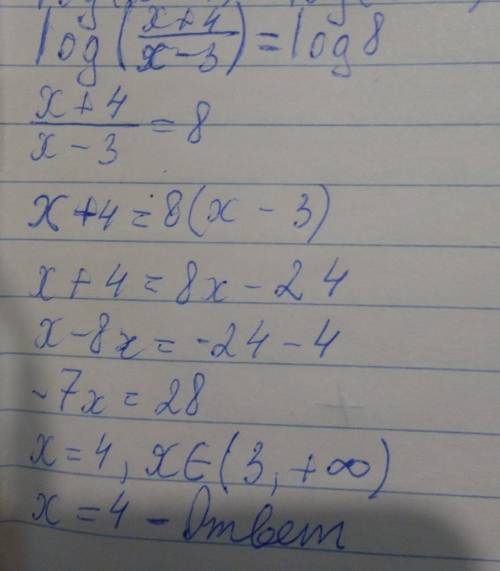 log(x+4/x-3)=log8
x+4/x-3=8
x+4=8(x-3)
x+4=8x-24
x-8x=-24-4
-7x=28
x=4, x∈(3,+∞)
x=4 - Ответ